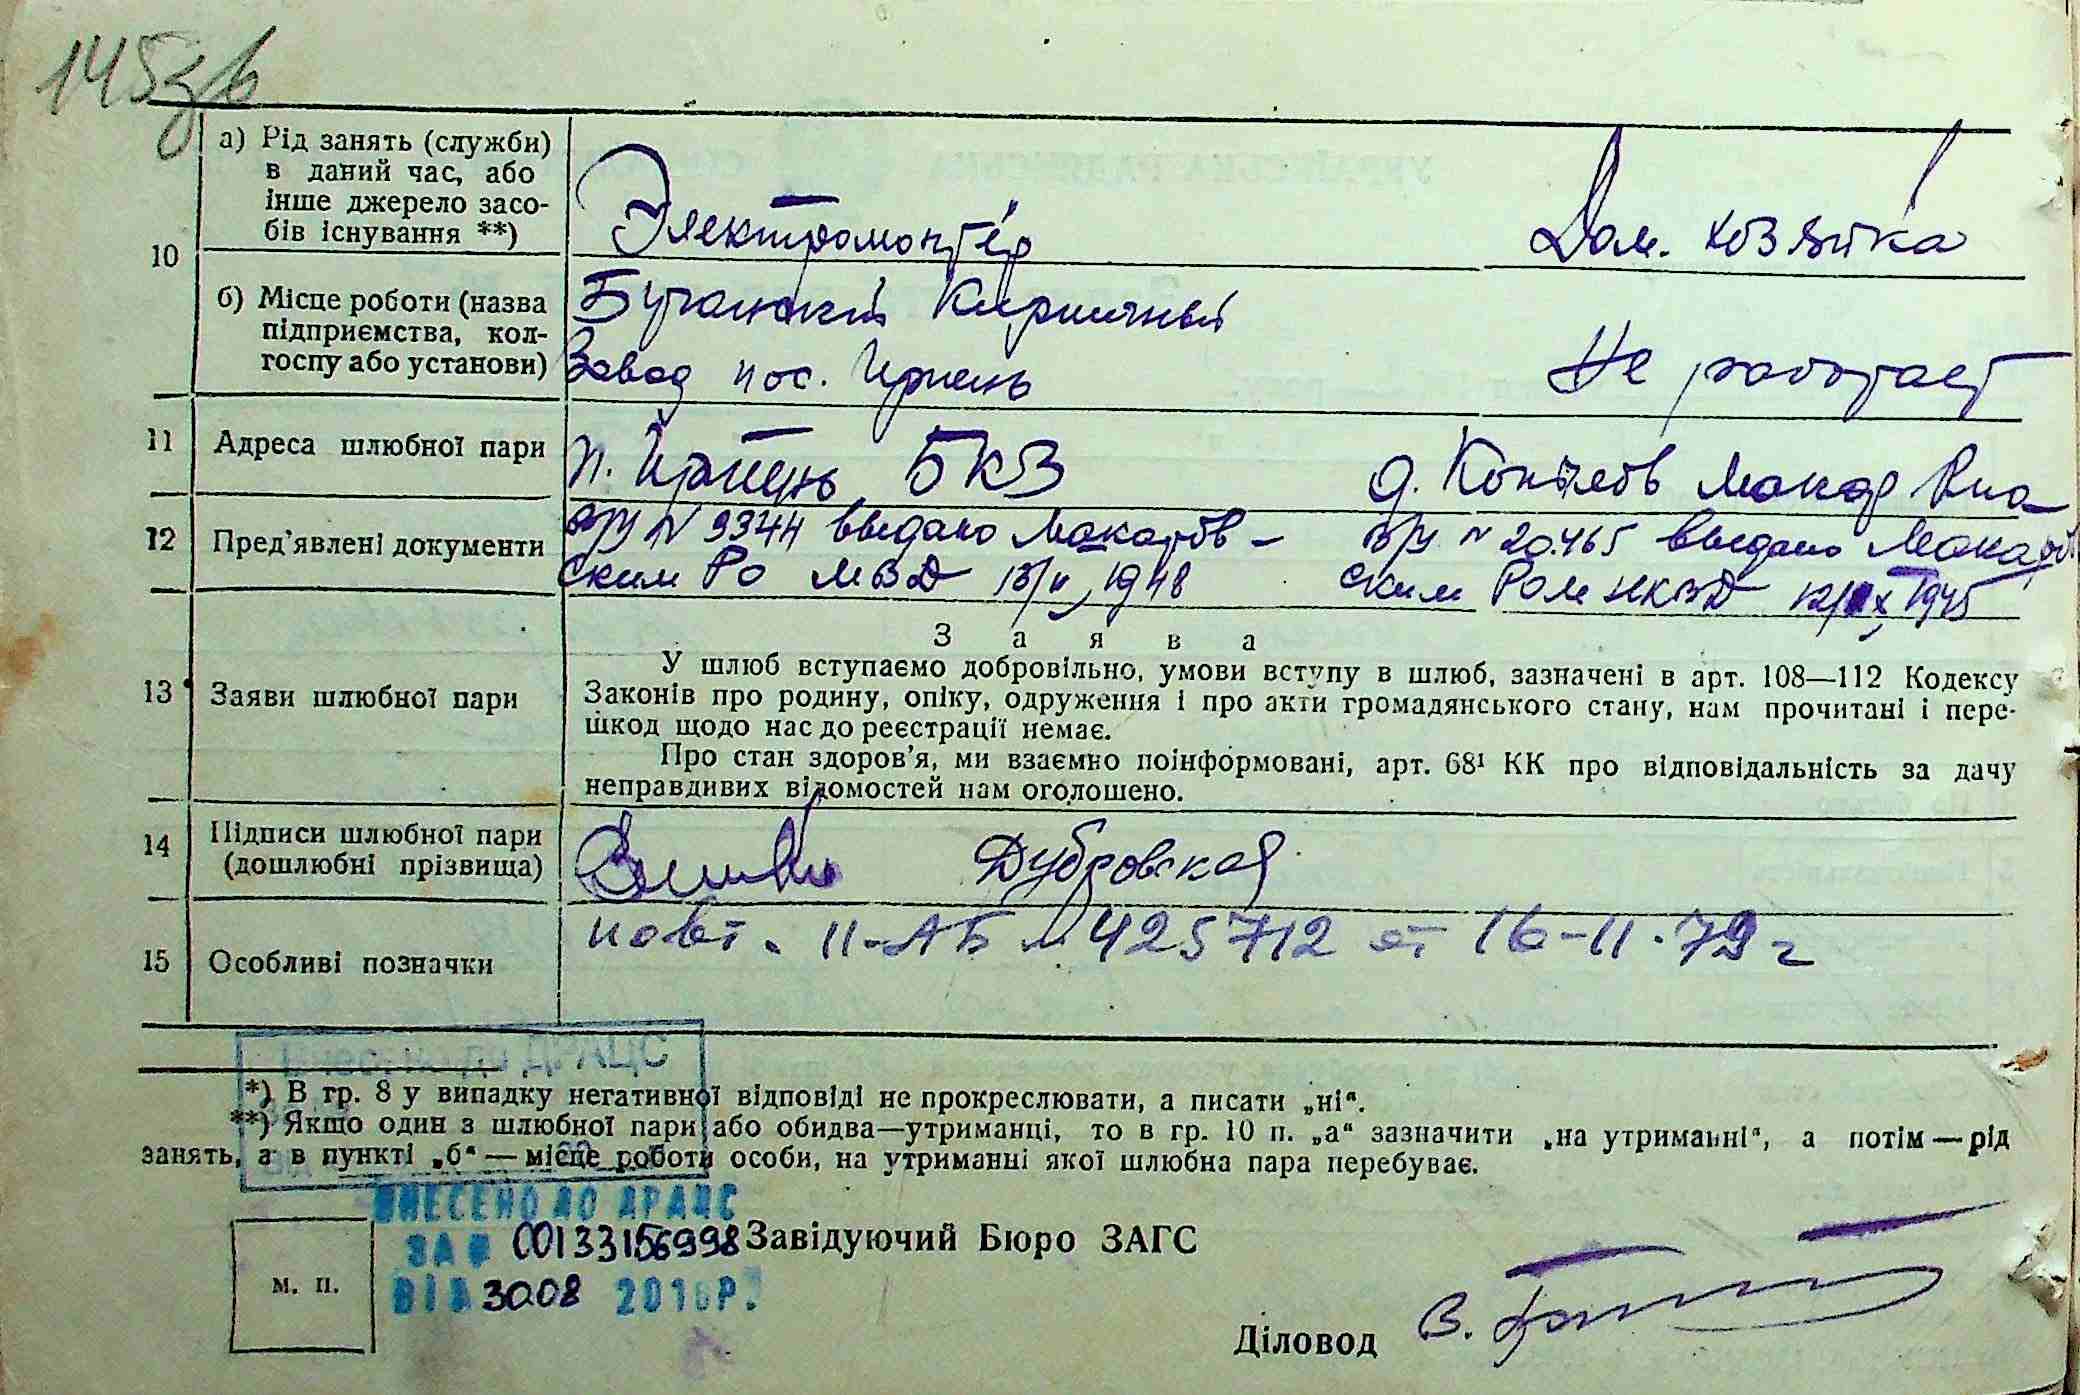 145зв
а) Рід занять (служби) в даний час, або інше джерело засо-
бів існування **)
Электромонтёр
Дом. хозяйка
10
б) Місце роботи (назва
підприємства, кол-
госпу або установи)
Бучанский Кирпичный
Завод пос. Ирпень
Не работает
11 Адреса шлюбної пари
п. Ирпень БКЗ
12 Пред'явлені документи
в/у № 9344 выдано Макаров-
ским РО МВД 1948
в/у № 20465 выдано Макаров
ским НКВД 1945
Заява
13 Заяви шлюбної пари
У шлюб вступаємо добровільно, умови вступу в шлюб, зазначені в арт. 108—112 Кодексу
Законів про родину, опіку, одруження і про акти громадянського стану, нам прочитані і пере-
шкод щодо нас до реєстрації немає.
Про стан здоров'я, ми взаємно поінформовані, арт. 68¹ КК про відповідальність за дачу
неправдивих відомостей нам оголошено.
14 Підписи шлюбної пари
(дошлюбні прізвища)
Дубровская
15 Особливі позначки
повт. II-АБ № 425712 от 16-11.79 г
Внесено до ДРАЦС
*) В гр. 8 у випадку негативної відповіді не прокреслювати, а писати „ні“.
**) Якщо один з шлюбної пари або обидва—утриманці, то в гр. 10 п. „а“ зазначити „на утриманні“, а потім — рід
занять, а в пункті „б“ — місце роботи особи, на утриманні якої шлюбна пара перебуває.
ВНЕСЕНО ДО ДРАЦС
ЗА № 00133156998
Завідуючий Бюро ЗАГС
м. п.
ВІД 30.08 2016Р.
Діловод